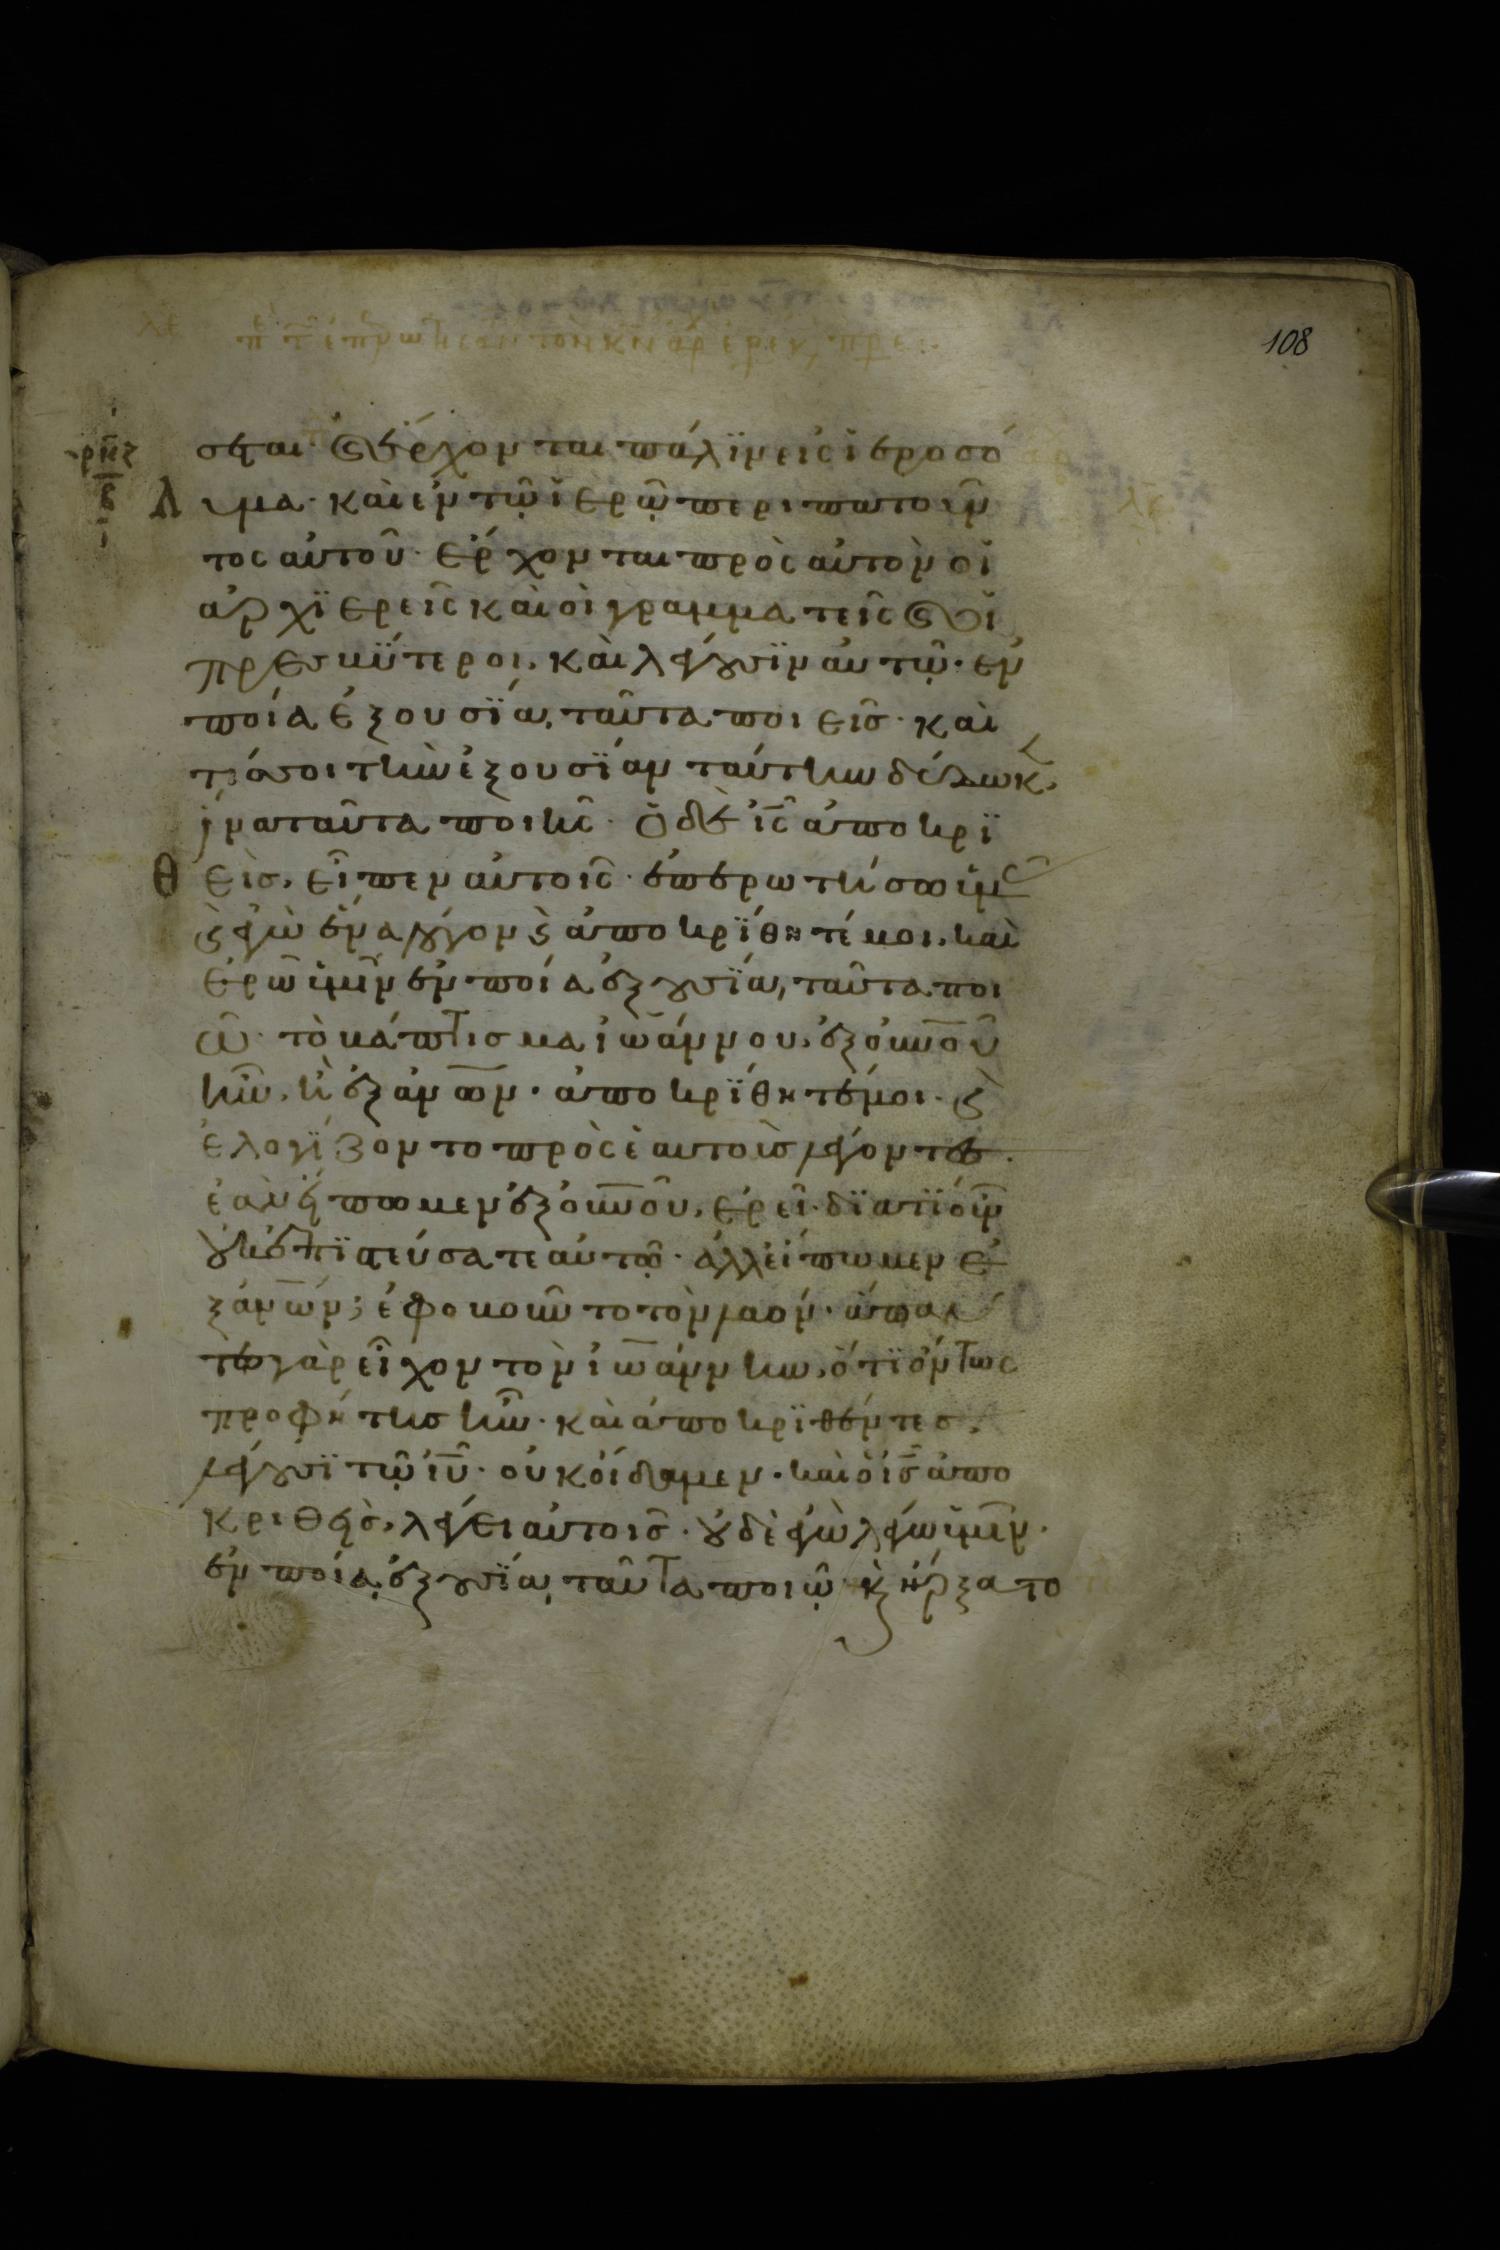 108
λε
σεται· καὶ ἔρχονται πάλϊν εἰς ἱεροσό
ρκζ
β
λυμα· καὶ ἐν τῷ ἱερῷ περιπατοῦν
τος αὐτοῦ· ἔρχονται πρὸς αὐτὸν οἱ
ἀρχϊερεῖς καὶ οἱ γραμματεῖς καὶ οἱ
πρεσβΰτεροι, καὶ λέγουσϊν αὐτῷ· ἐν
ποία ἐξουσΐα, ταῦτα ποιεῖσ· καὶ
τίσ σοι τὴν ἐξουσΐαν ταύτην δέδωκ,
ἵνα ταῦτα ποιῆς· ὁ δὲ ις ἀποκρϊ
θεὶσ, εἶπεν αὐτοῖς· ἐπερωτήσω ὑμς
κἀγὼ ἕνα λόγον κ ἀποκρΐθητέ μοι, καὶ
ἐρῶ ὑμῖν ἐν ποία ἐξουσΐα, ταῦτα ποι
ῶ· τὸ βάπτισμα ἰωάννου, ἐξ οὐνοῦ
ἦν, ἢ ἐξ ἀνων· ἀποκρΐθητέ μοι· κ
ἐλογΐζοντο πρὸς ἑαυτοὺσ λέγοντεσ·
ἐὰν εἴπωμεν ἐξ οὐνοῦ, ἐρεῖ· δϊατΐ οὖν
οὐκ ἐπϊστεύσατε αὐτῷ· ἀλλ εἴπωμεν ἐ
ξ ἀνων; ἐφοβοῦντο τὸν λαόν· ἅπαν
τεσ γὰρ εἶχον τὸν ἰωάννην, ὅτϊ ὄντως
προφήτησ ἦν· καὶ ἀποκρϊθέντεσ,
λέγουσϊ τῷ ιυ· οὐκ οἴδαμεν· καὶ ὁ ισ ἀπο
κριθεὶσ, λέγει αὐτοῖσ· οὐδὲ ἐγὼ λέγω ὑμῖν·
ἐν ποίᾳ ἐξουσΐᾳ ταῦτα ποιῶ· κ ἤρξατο